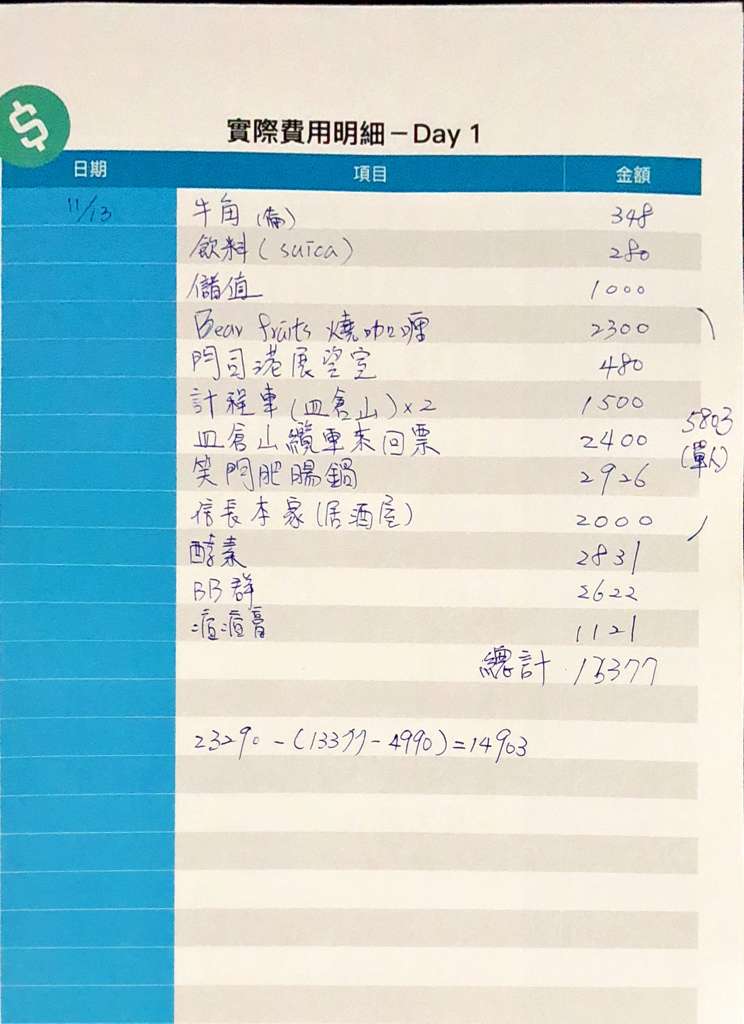 $
實際費用明細－Day 1
日期 項目 金額
11/13 牛角 348
飲料(suica) 280
儲值 1000
Bear fruits 燒咖喱 2300
門司港展望室 480
計程車(皿倉山)×2 1500
皿倉山纜車來回票 2400
5803
(單人)
笑門肥腸鍋 2926
信長本家(居酒屋) 2000
酵素 2831
BB群 2622
痘痘膏 1121
總計 13377
23290-(13377-4990)=14903